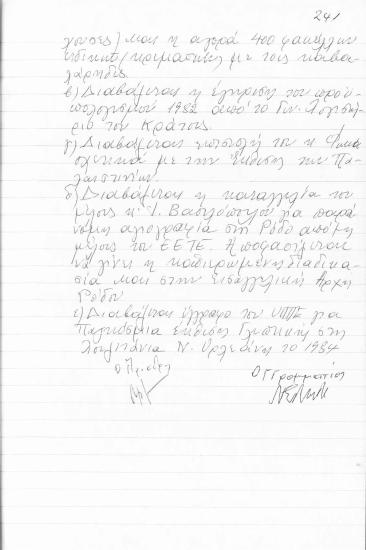 241
χουσες) και η αγορά 400 φακέλλων
ειδικής κρεμαστής με τους
β) Διαβάζεται η έγκριση του προϋ-
πολογισμού 1982 από το Γεν. Λογιστή-
ριο του Κράτους.
γ) Διαβάζεται επιστολή του κ.
σχετικά με την Έκθεση της Πα-
λαιστίνης.
δ) Διαβάζεται η καταγγελία του
μέλους κ. Ι. Βασιλόπουλου για παρά
νομη αγιογραφία στη Ρόδο από μη
μέλος του ΕΕΤΕ. Αποφασίζεται
να γίνει η καθιερωμένη διαδικα-
σία και στην Εισαγγελική Αρχή
Ρόδου
ε) Διαβάζεται έγγραφο του ΥΠΠΕ για
Παγκόσμια Έκθεση Γλυπτικής στη
Λουϊζιάνα Ν. Ορλεάνης το 1984
Ο Πρόεδρος
Ο Γραμματέας